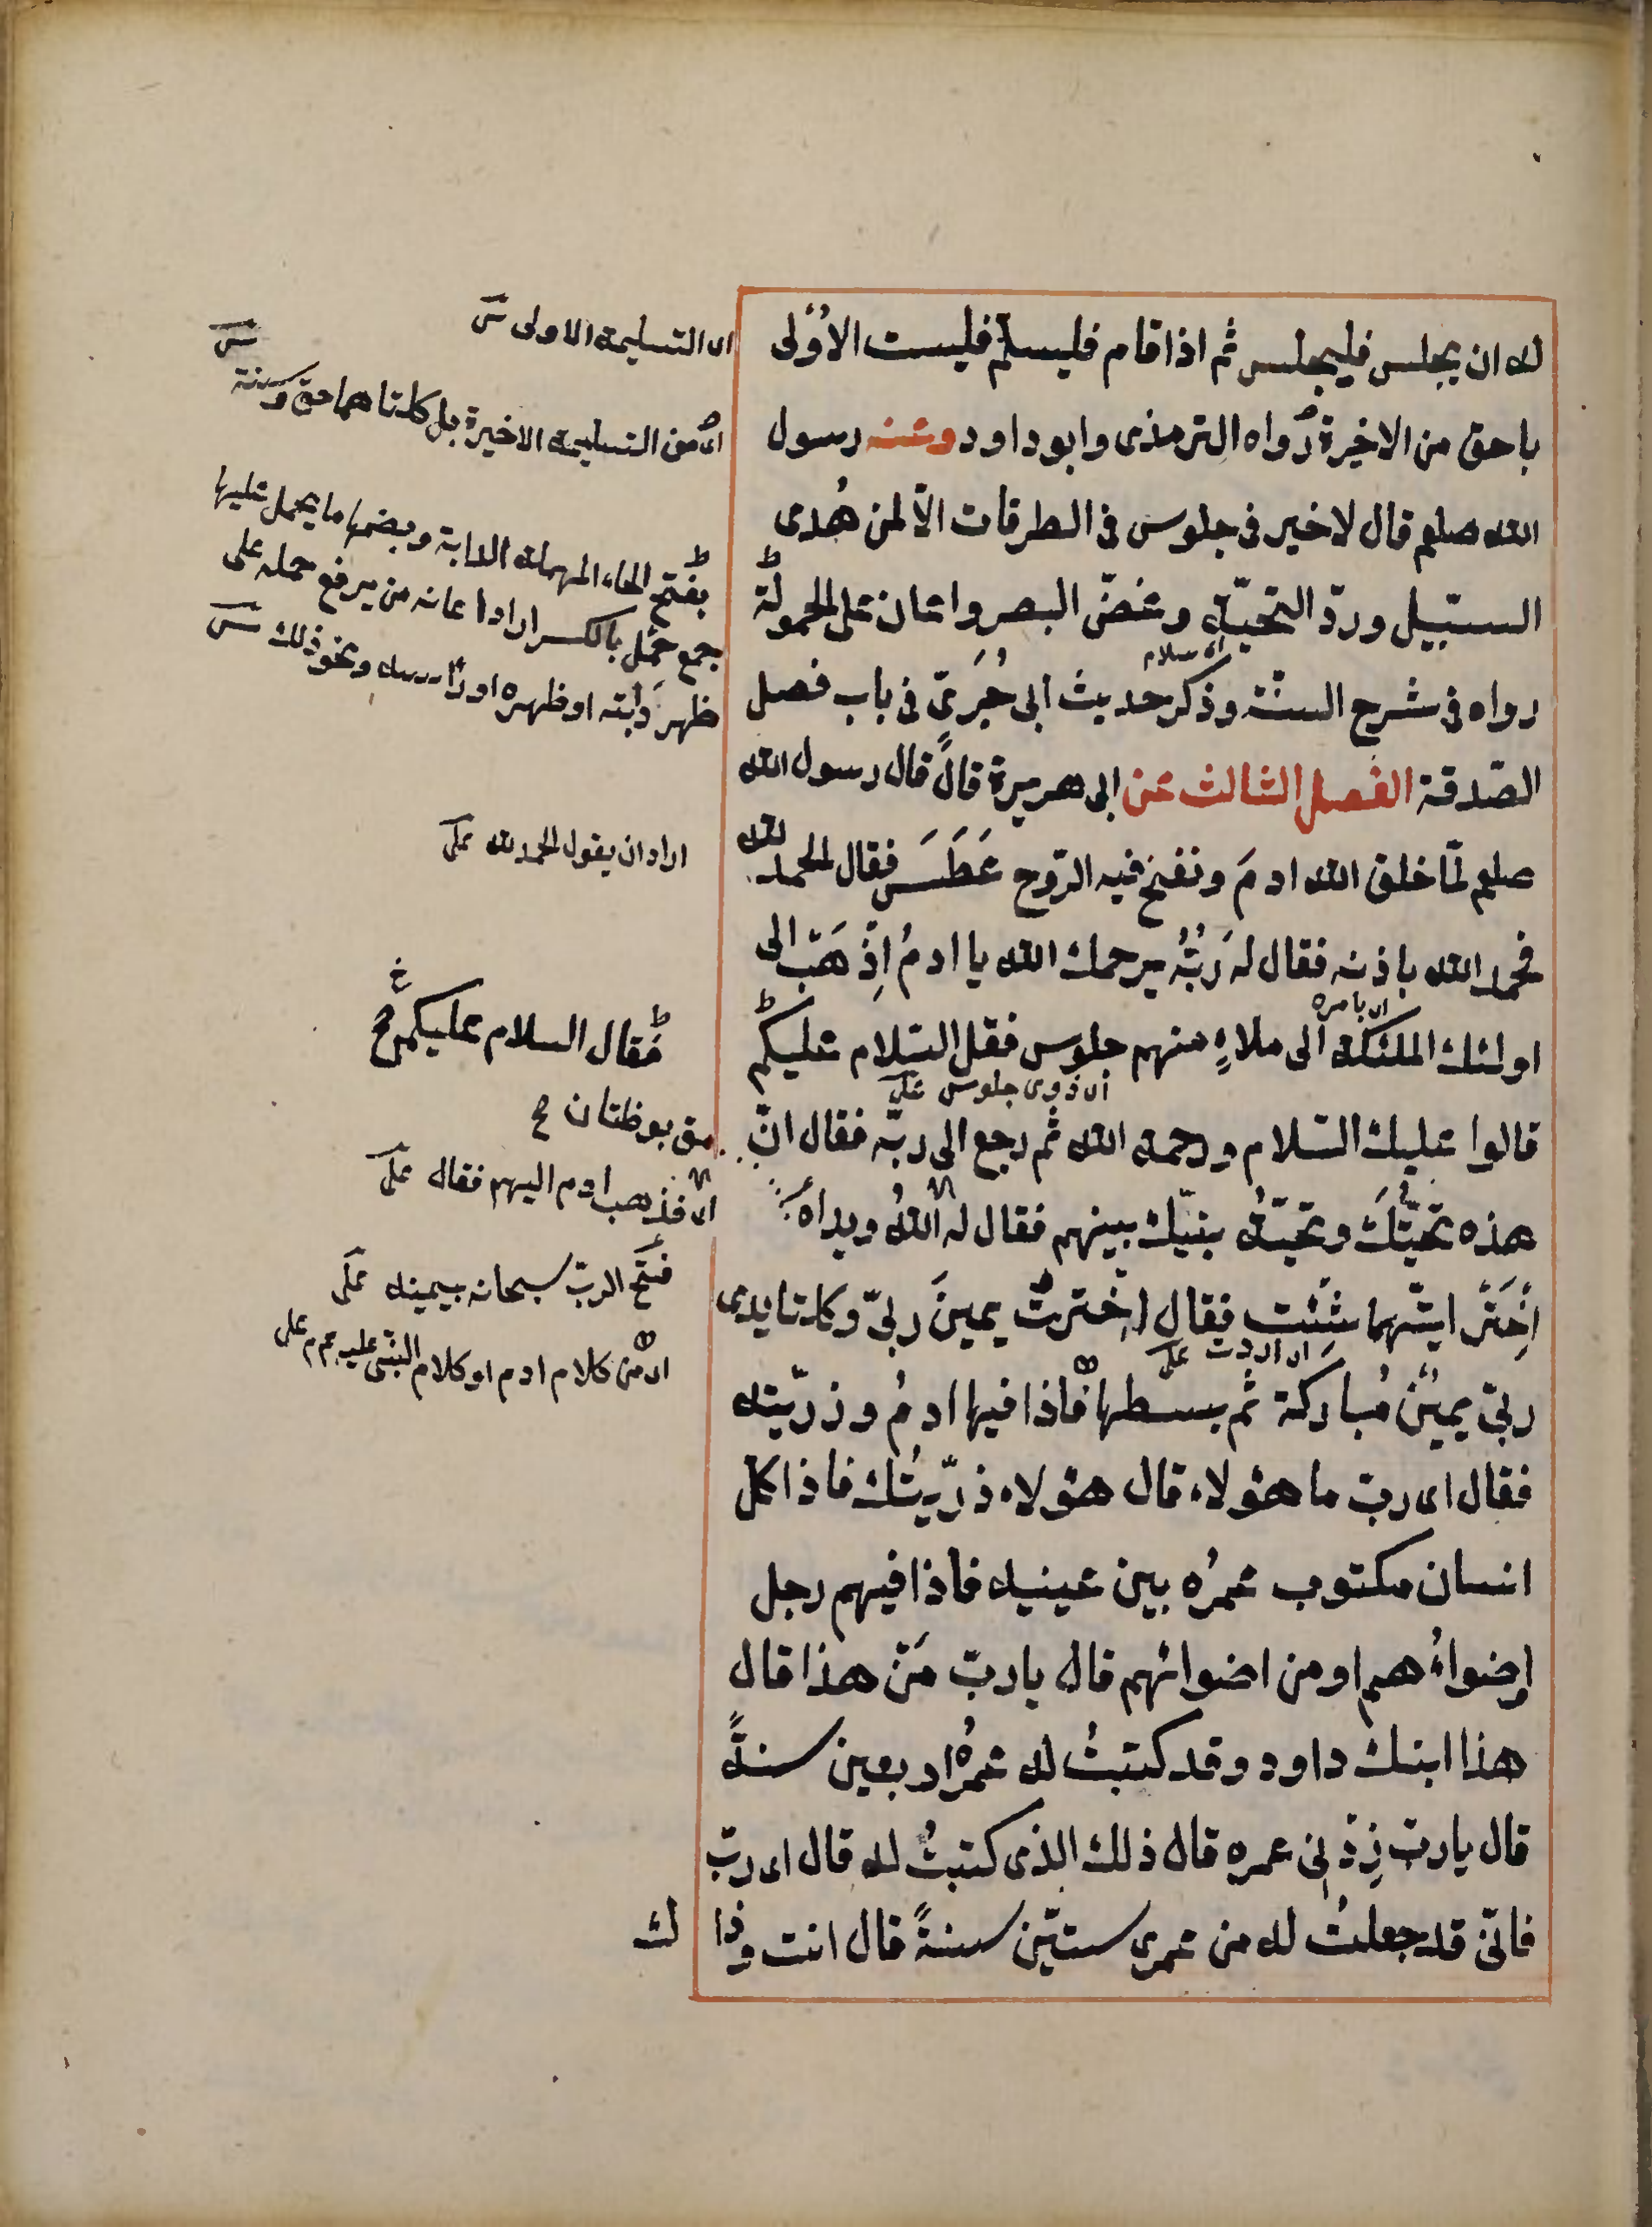 له ان يجلس فليجلس ثم اذا قام فليسلم فليست الاولى
باحق من الاخيرة رواه الترمذى وابو داود وعنه رسول
الله صلعم قال لا خير فى جلوس فى الطرقات الّا لمن هُدى
السبيل وردّ التحيّة وغضّ البصر واعان على الحمولة
رواه فى شرح السنّة وذكر حديث ابى جُرَىّ فى باب فضل
الصّدقة الفصل الثالث عن ابى هريرة قال قال رسول الله
صلعم لمّا خلق الله ادمَ ونفخ فيه الرّوح عَطَسَ فقال الحمد لله
فحمد الله باذنه فقال له رَبُّهُ يرحمك الله يا ادمُ اِذْهَبْ الى
اولئك الملئكة الى ملاءٍ منهم جلوس فقل السّلام عليكم
قالوا عليك السّلام ورحمة الله ثم رجع الى ربّه فقال انّ
هذه تحيّتك وتحيّةُ بنيك بينهم فقال له اللهُ ويداه
اِخْتَرْ ايّتهما شئت فقال اخترتُ يمينَ ربّى وكلتا يدى
ربّى يمينٌ مُباركة ثم بسطها فاذا فيها ادمُ وذرّيّته
فقال اى ربّ ما هؤلاء قال هؤلاء ذرّيتُك فاذا كل
انسان مكتوب عمرُه بين عينيه فاذا فيهم رجل
اضواءُهم او من اضوائهم قال يا ربّ مَنْ هذا قال
هذا ابنك داود وقد كتبتُ له عمرُه اربعين سنةً
قال يا ربّ زِدْ فى عمره قال ذلك الذى كتبتُ له قال اى ربّ
فانّى قد جعلتُ له من عمرى ستّين سنةً قال انت وذا
لك
اى سلام
اى بامره
اى ذوى جلوس على
اى اردت على
اى التسليمة الاولى س
اى من التسليمة الاخيرة بل كلتاهما حق وسنة س
بفتح الحاء المهملة الدابة وبضمها ما يحمل عليها
جمع حمل بالكسر اراد اعانه من يرفع حمله على
ظهر دابته او ظهره او رأسه ونحو ذلك س
اراد ان يقول الحمد لله على
فقال السلام عليكم
اى فذهب ادم اليهم فقال على
فتح الرب سبحانه بيمينه على
اى من كلام ادم او كلام النبى عليه م على